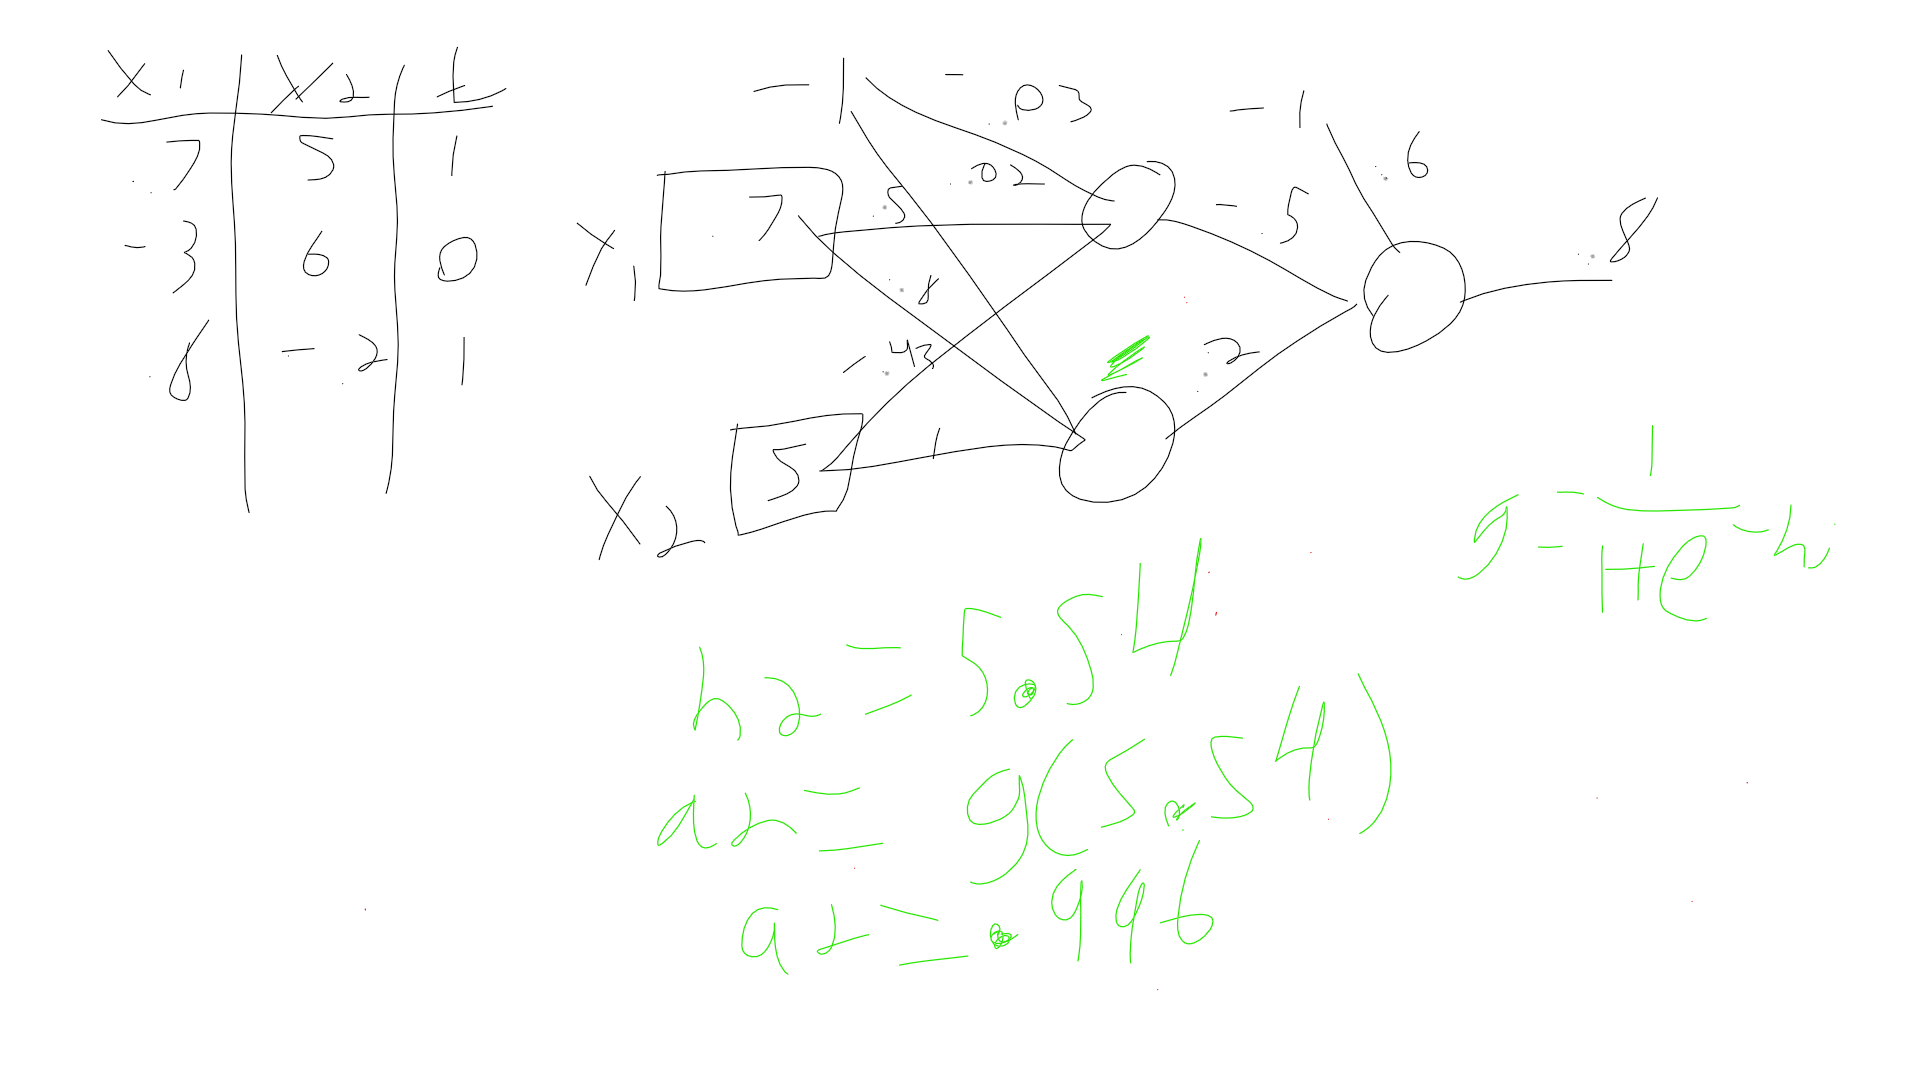 x1 x2 t
7 5 1
-3 6 0
8 -2 1
-1
-.03
.02
.5
.8
-.43
.1
x1 7
x2 5
-1
.6
-.5
.2
.8
g = 1
1+e-hi
h2 = 5.54
a2 = g(5.54)
a2 = .996